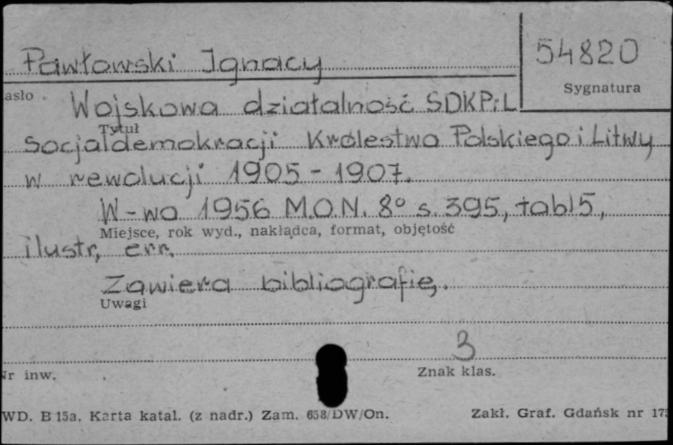 Pawłowski Ignacy
54820
Sygnatura
asło
Wojskowa działalność SDKPiL
Tytuł
Socjaldemokracji Królestwa Polskiego i Litwy
w rewolucji 1905-1907.
W-wa 1956 M.O.N. 8° s. 395, tabl5,
Miejsce, rok wyd., nakładca, format, objętość
ilustr, err.
Zawiera bibliografię.
Uwagi
3
Nr inw.
Znak klas.
WD. B 15a. Karta katal. (z nadr.) Zam. 658/DW/On.
Zakł. Graf. Gdańsk nr